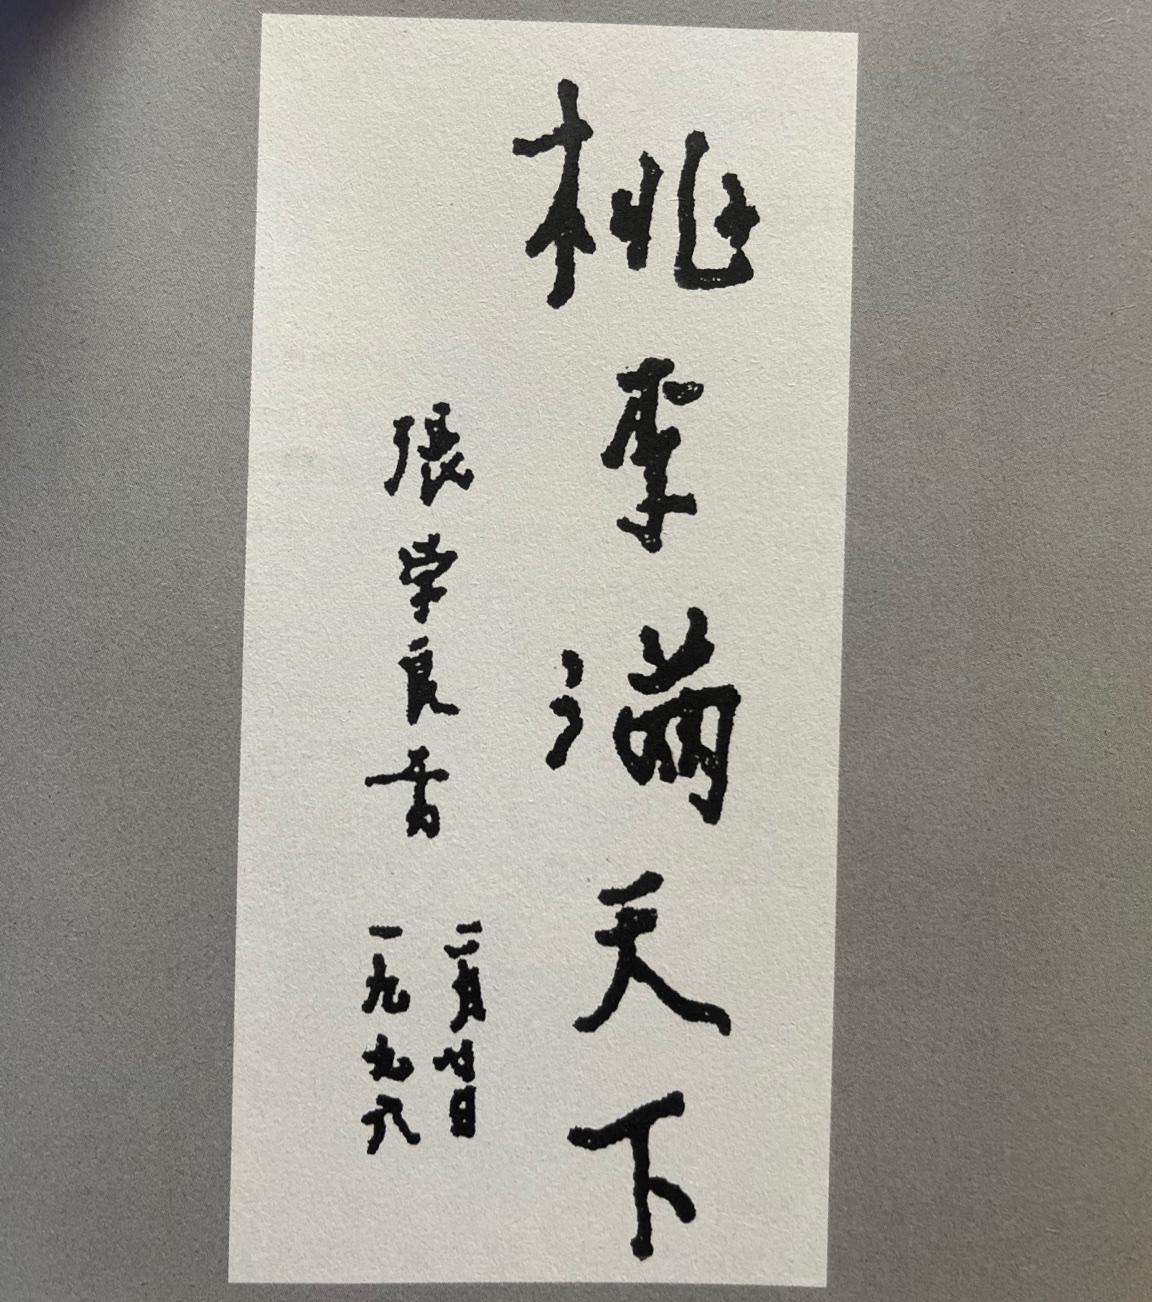 桃李滿天下
張学良書
二月廿日
一九九八